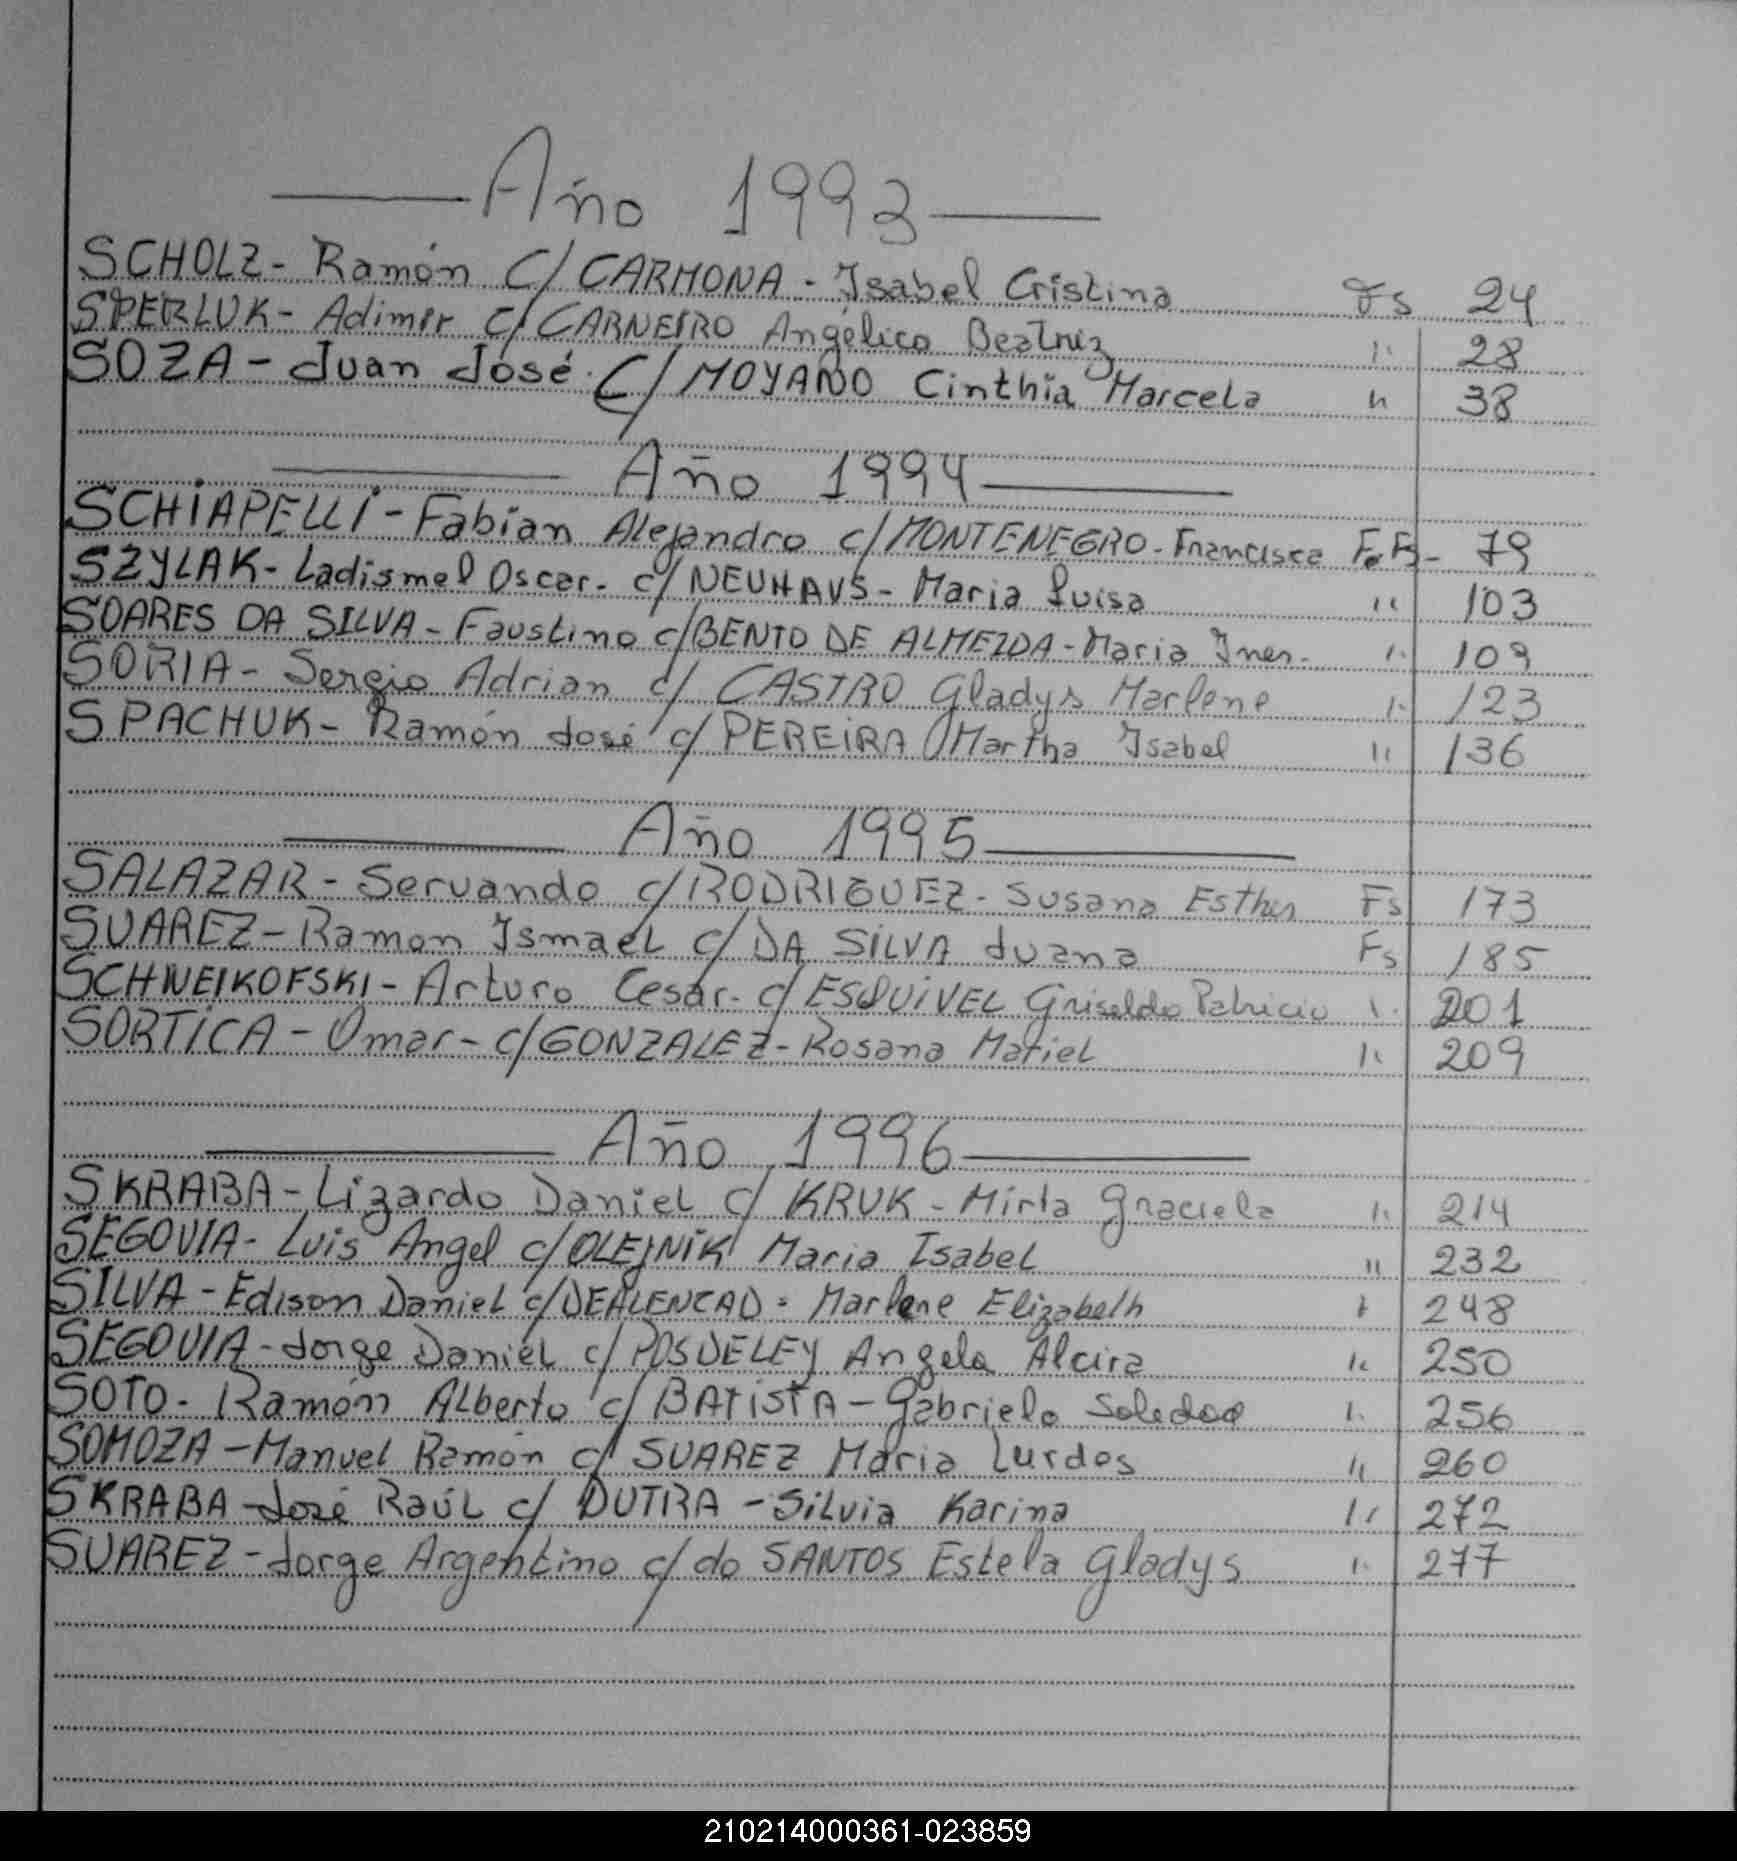 Año 1993
SCHOLZ - Ramón C/ CARMONA - Isabel Cristina Fs 24
SPERLUK - Adimir c/ CARNEIRO Angélica Beatriz " 28
SOZA - Juan José C/ MOYANO Cinthia Marcela " 38
Año 1994
SCHIAPELLI - Fabian Alejandro c/ MONTENEGRO - Francisca 79
SZYLAK - Ladismel Oscar - c/ NEUHAUS - Maria Luisa " 103
SOARES DA SILVA - Faustino c/ BENTO DE ALMEIDA - Maria Ines - " 109
SORIA - Sergio Adrian c/ CASTRO Gladys Marlene " 123
SPACHUK - Ramón José c/ PEREIRA Martha Isabel " 136
Año 1995
SALAZAR - Servando c/ RODRIGUEZ - Susana Esther Fs 173
SUAREZ - Ramon Ismael c/ DA SILVA Juana Fs 185
SCHWEIKOFSKI - Arturo Cesar - c/ ESQUIVEL Griselda Patricia " 201
SORTICA - Omar - c/ GONZALEZ - Rosana Mariel " 209
Año 1996
SKRABA - Lizardo Daniel c/ KRUK - Mirta Graciela " 214
SEGOVIA - Luis Angel c/ OLEJNIK Maria Isabel " 232
SILVA - Edison Daniel c/ - Marlene Elizabeth " 248
SEGOVIA - Jorge Daniel c/ POSDELEY Angela Alcira " 250
SOTO - Ramón Alberto c/ BATISTA - Gabriela Soledad " 256
SOMOZA - Manuel Ramón c/ SUAREZ Maria Lurdes " 260
SKRABA - José Raúl c/ DUTRA - Silvia Karina " 272
SUAREZ - Jorge Argentino c/ do SANTOS Estela Gladys " 277
210214000361-023859